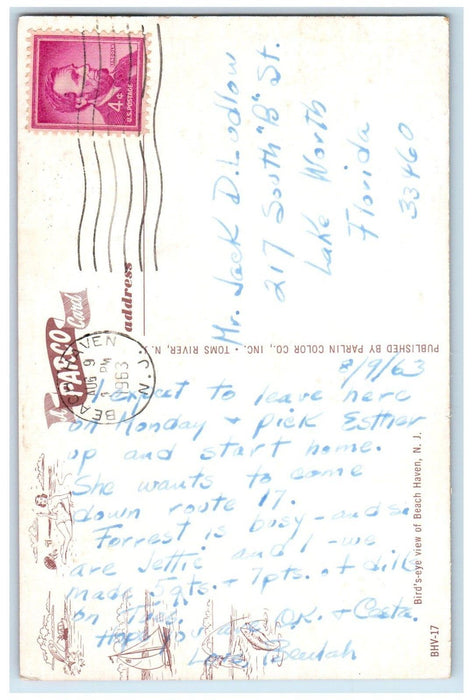 LINCOLN
4¢
U.S. POSTAGE
BEACH HAVEN
AUG 9
PM
1963
N.J.
A PARCO Card
address
Mr. Jack D. Ludlow
217 South "B" St.
Lake Worth
Florida
33460
PUBLISHED BY PARLIN COLOR CO., INC. • TOMS RIVER, N. J.
8/9/63
I expect to leave here
on Monday + pick Esther
up and start home.
She wants to come
down route 17.
Forrest is busy - and so
are Jettie and I - we
made 5 qts. + 7 pts. of dills
on Tues.
Hope you are O.K. +
Love, Beulah
Bird's-eye view of Beach Haven, N. J.
BHV-17